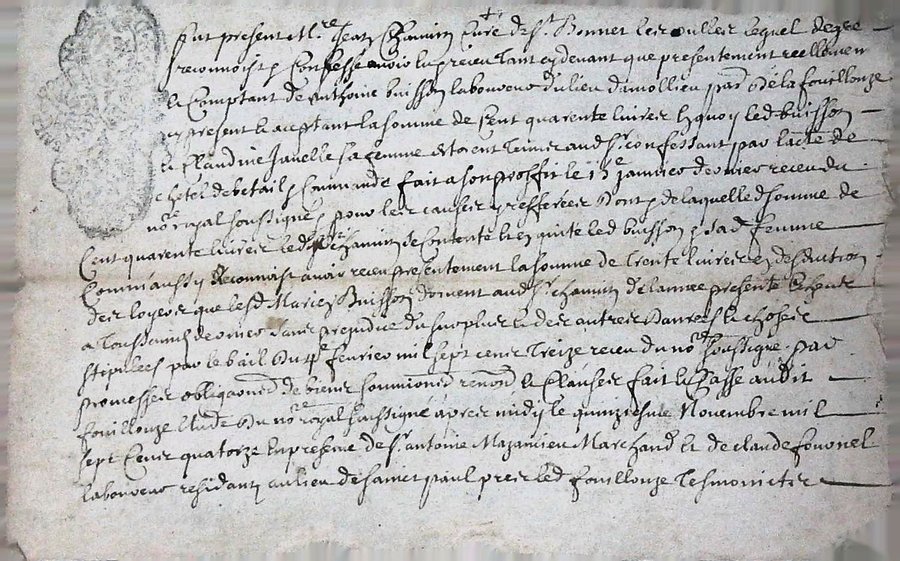 fut present M.re Jean Chamin Curé de St. Bonnet les oulles lequel de gré
reconnoist & Confesse avoir lupreceu tant cy devant que presentement reellement
& Comptant de Anthoine buisson laboureur du lieu damollieu parr. de la fouillouze
cy present & acceptant la somme de Cent quarente livres en quoy led. buisson
& Claudine Janelle sa femme estoient tenus aud. Sr. confessant par lacte de
chetel de betail & Commande fait a son proffit le 13e janvier dernier receu du
no.re royal soussigné & pour les causes y refferées dont & de laquelle somme de
Cent quarente livres led. Chamin se Contente & en quite led. buisson & sad. femme
Comm'aussy Reconnoist avoir receu presentement la somme de trente livres en deduction
des loyers que lesd. Mariez Buisson doivent aud. Sr. chamin de lannée presente & cheute
a toussaint dernier sans prejudice du surplus & des autres danrées & choses
stipullées par le bail du 4e fevrier mil sept cens treize receu du no.re soussigné. par
promesses obliga'ons de biens soumissions renon'ons & Clauses fait & Passé audit
fouillouze Etude du no.re royal soussigné apres midy le quinziesme Novembre mil
sept Cens quatorze En presence de Sr. antoine Mazancieu Marchand & de claude fovonel
laboureur residants au lieu de sainct paul pres led. fouillouze Tesmoins &c